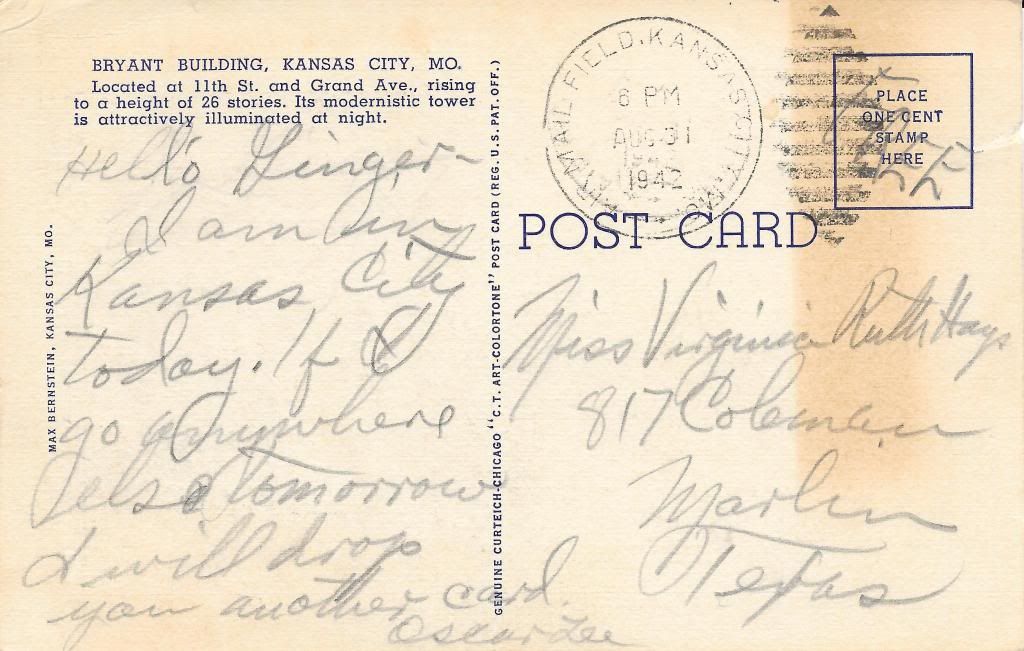 BRYANT BUILDING, KANSAS CITY, MO.
Located at 11th St. and Grand Ave., rising
to a height of 26 stories. Its modernistic tower
is attractively illuminated at night.
Hello Ginger-
I am in
Kansas City
today. If I
go anywhere
else tomorrow
I will drop
you another card.
Oscar Lee
MAX BERNSTEIN, KANSAS CITY, MO.
GENUINE CURTEICH-CHICAGO "C.T. ART-COLORTONE" POST CARD (REG. U.S. PAT. OFF.)
AIR MAIL FIELD, KANSAS CITY, MO.
6 PM
AUG 31
1942
PLACE
ONE CENT
STAMP
HERE
Free
POST CARD
Miss Virginia Ruth Hays
817 Coleman
Marlin
Texas